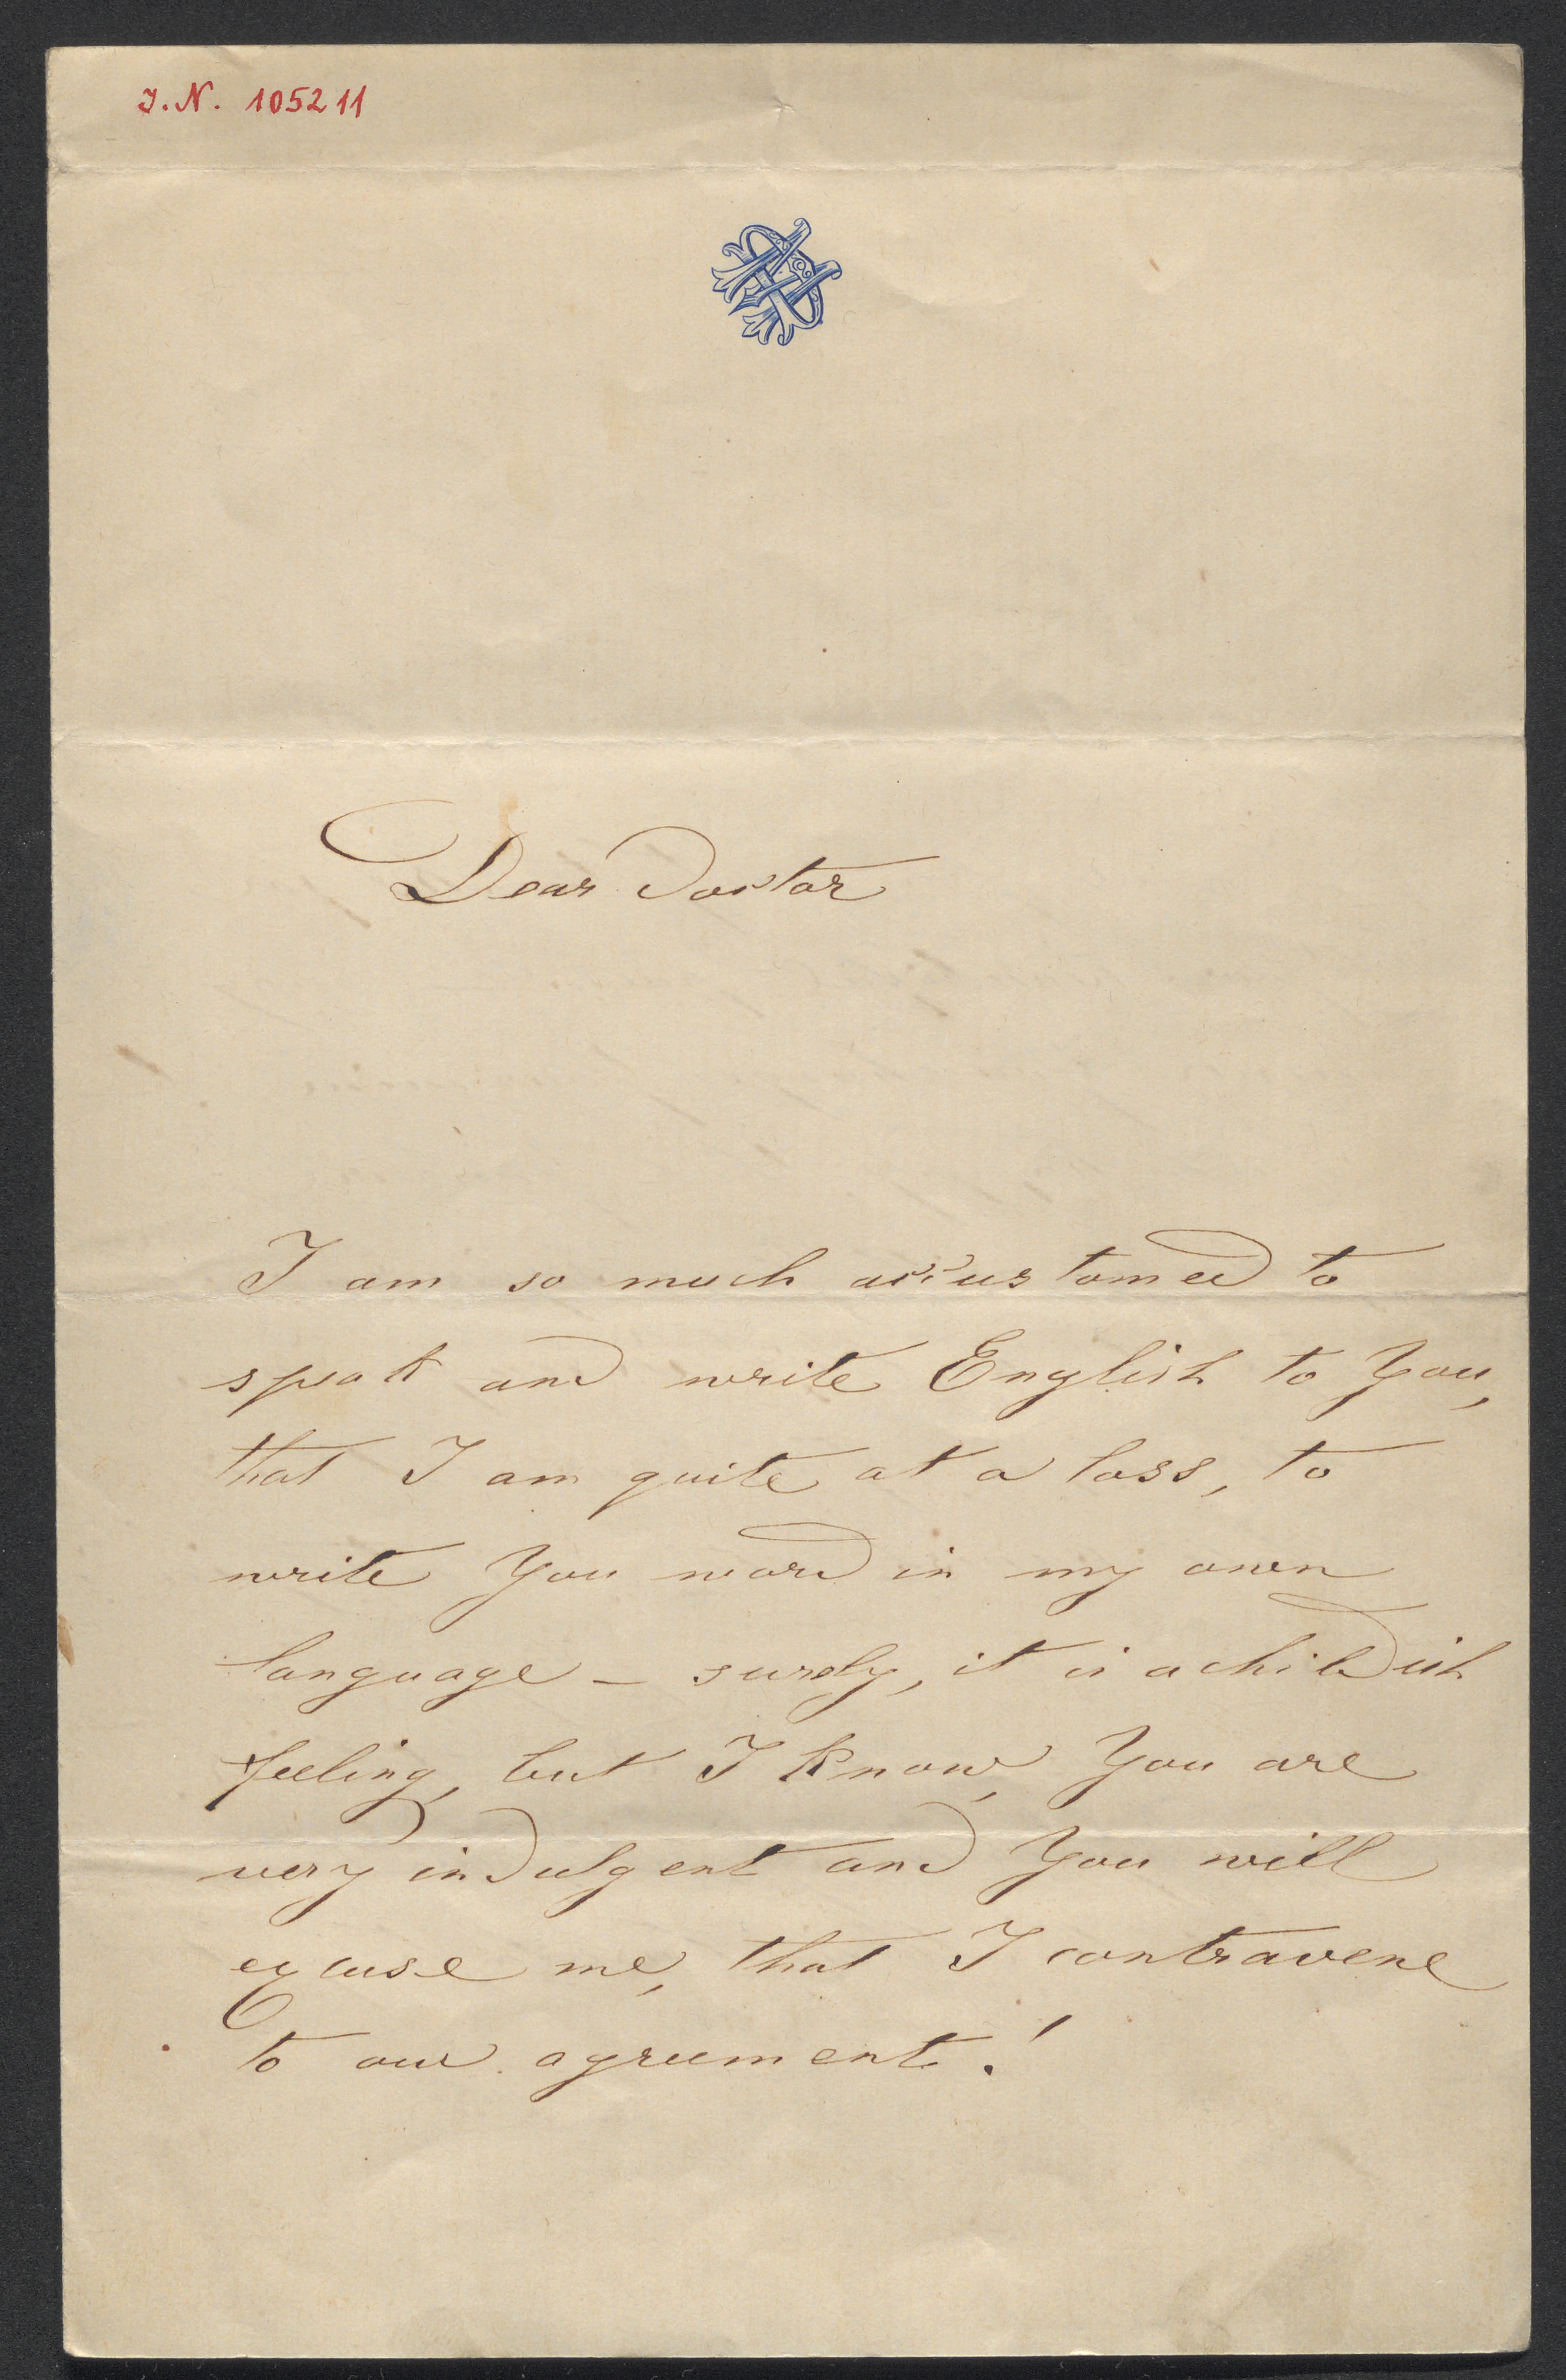 J.N. 105211
Dear Doctor
I am so much accustomed to
speak and write English to You,
that I am quite at a loss, to
write You word in my own
language – surely, it is a childish
feeling, but I know, You are
very indulgent and You will
excuse me, that I contravene
to our agreement!